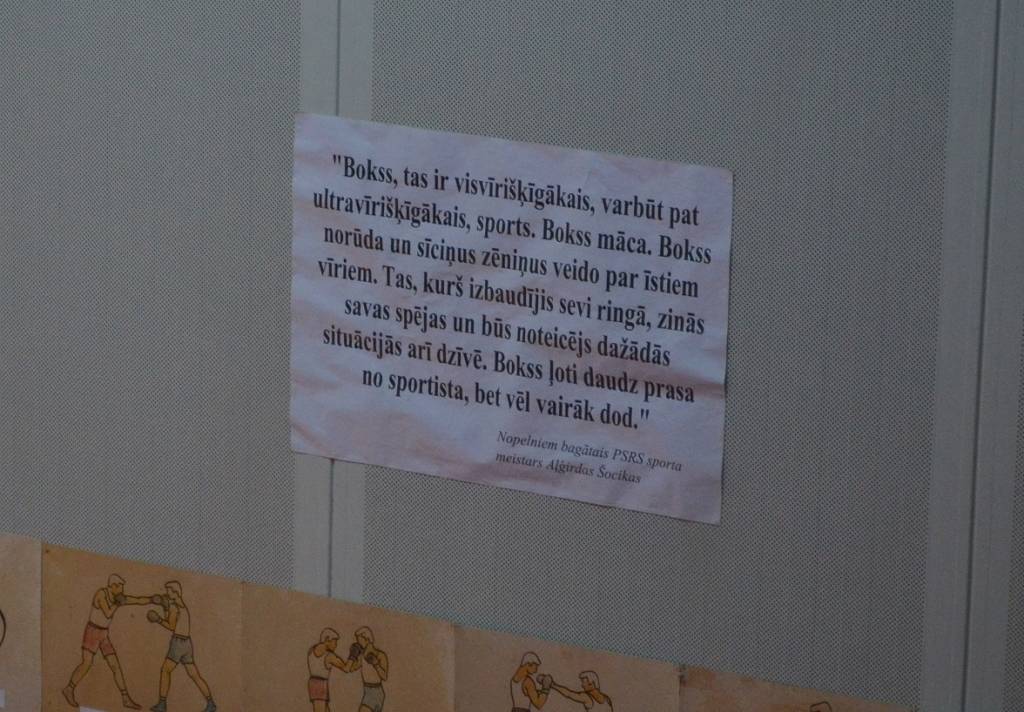 "Bokss, tas ir visvīrišķīgākais, varbūt pat
ultravīrišķīgākais, sports. Bokss māca. Bokss
norūda un sīciņus zēniņus veido par īstiem
vīriem. Tas, kurš izbaudījis sevi ringā, zinās
savas spējas un būs noteicējs dažādās
situācijās arī dzīvē. Bokss ļoti daudz prasa
no sportista, bet vēl vairāk dod."
Nopelniem bagātais PSRS sporta
meistars Aļģirdas Šocikas